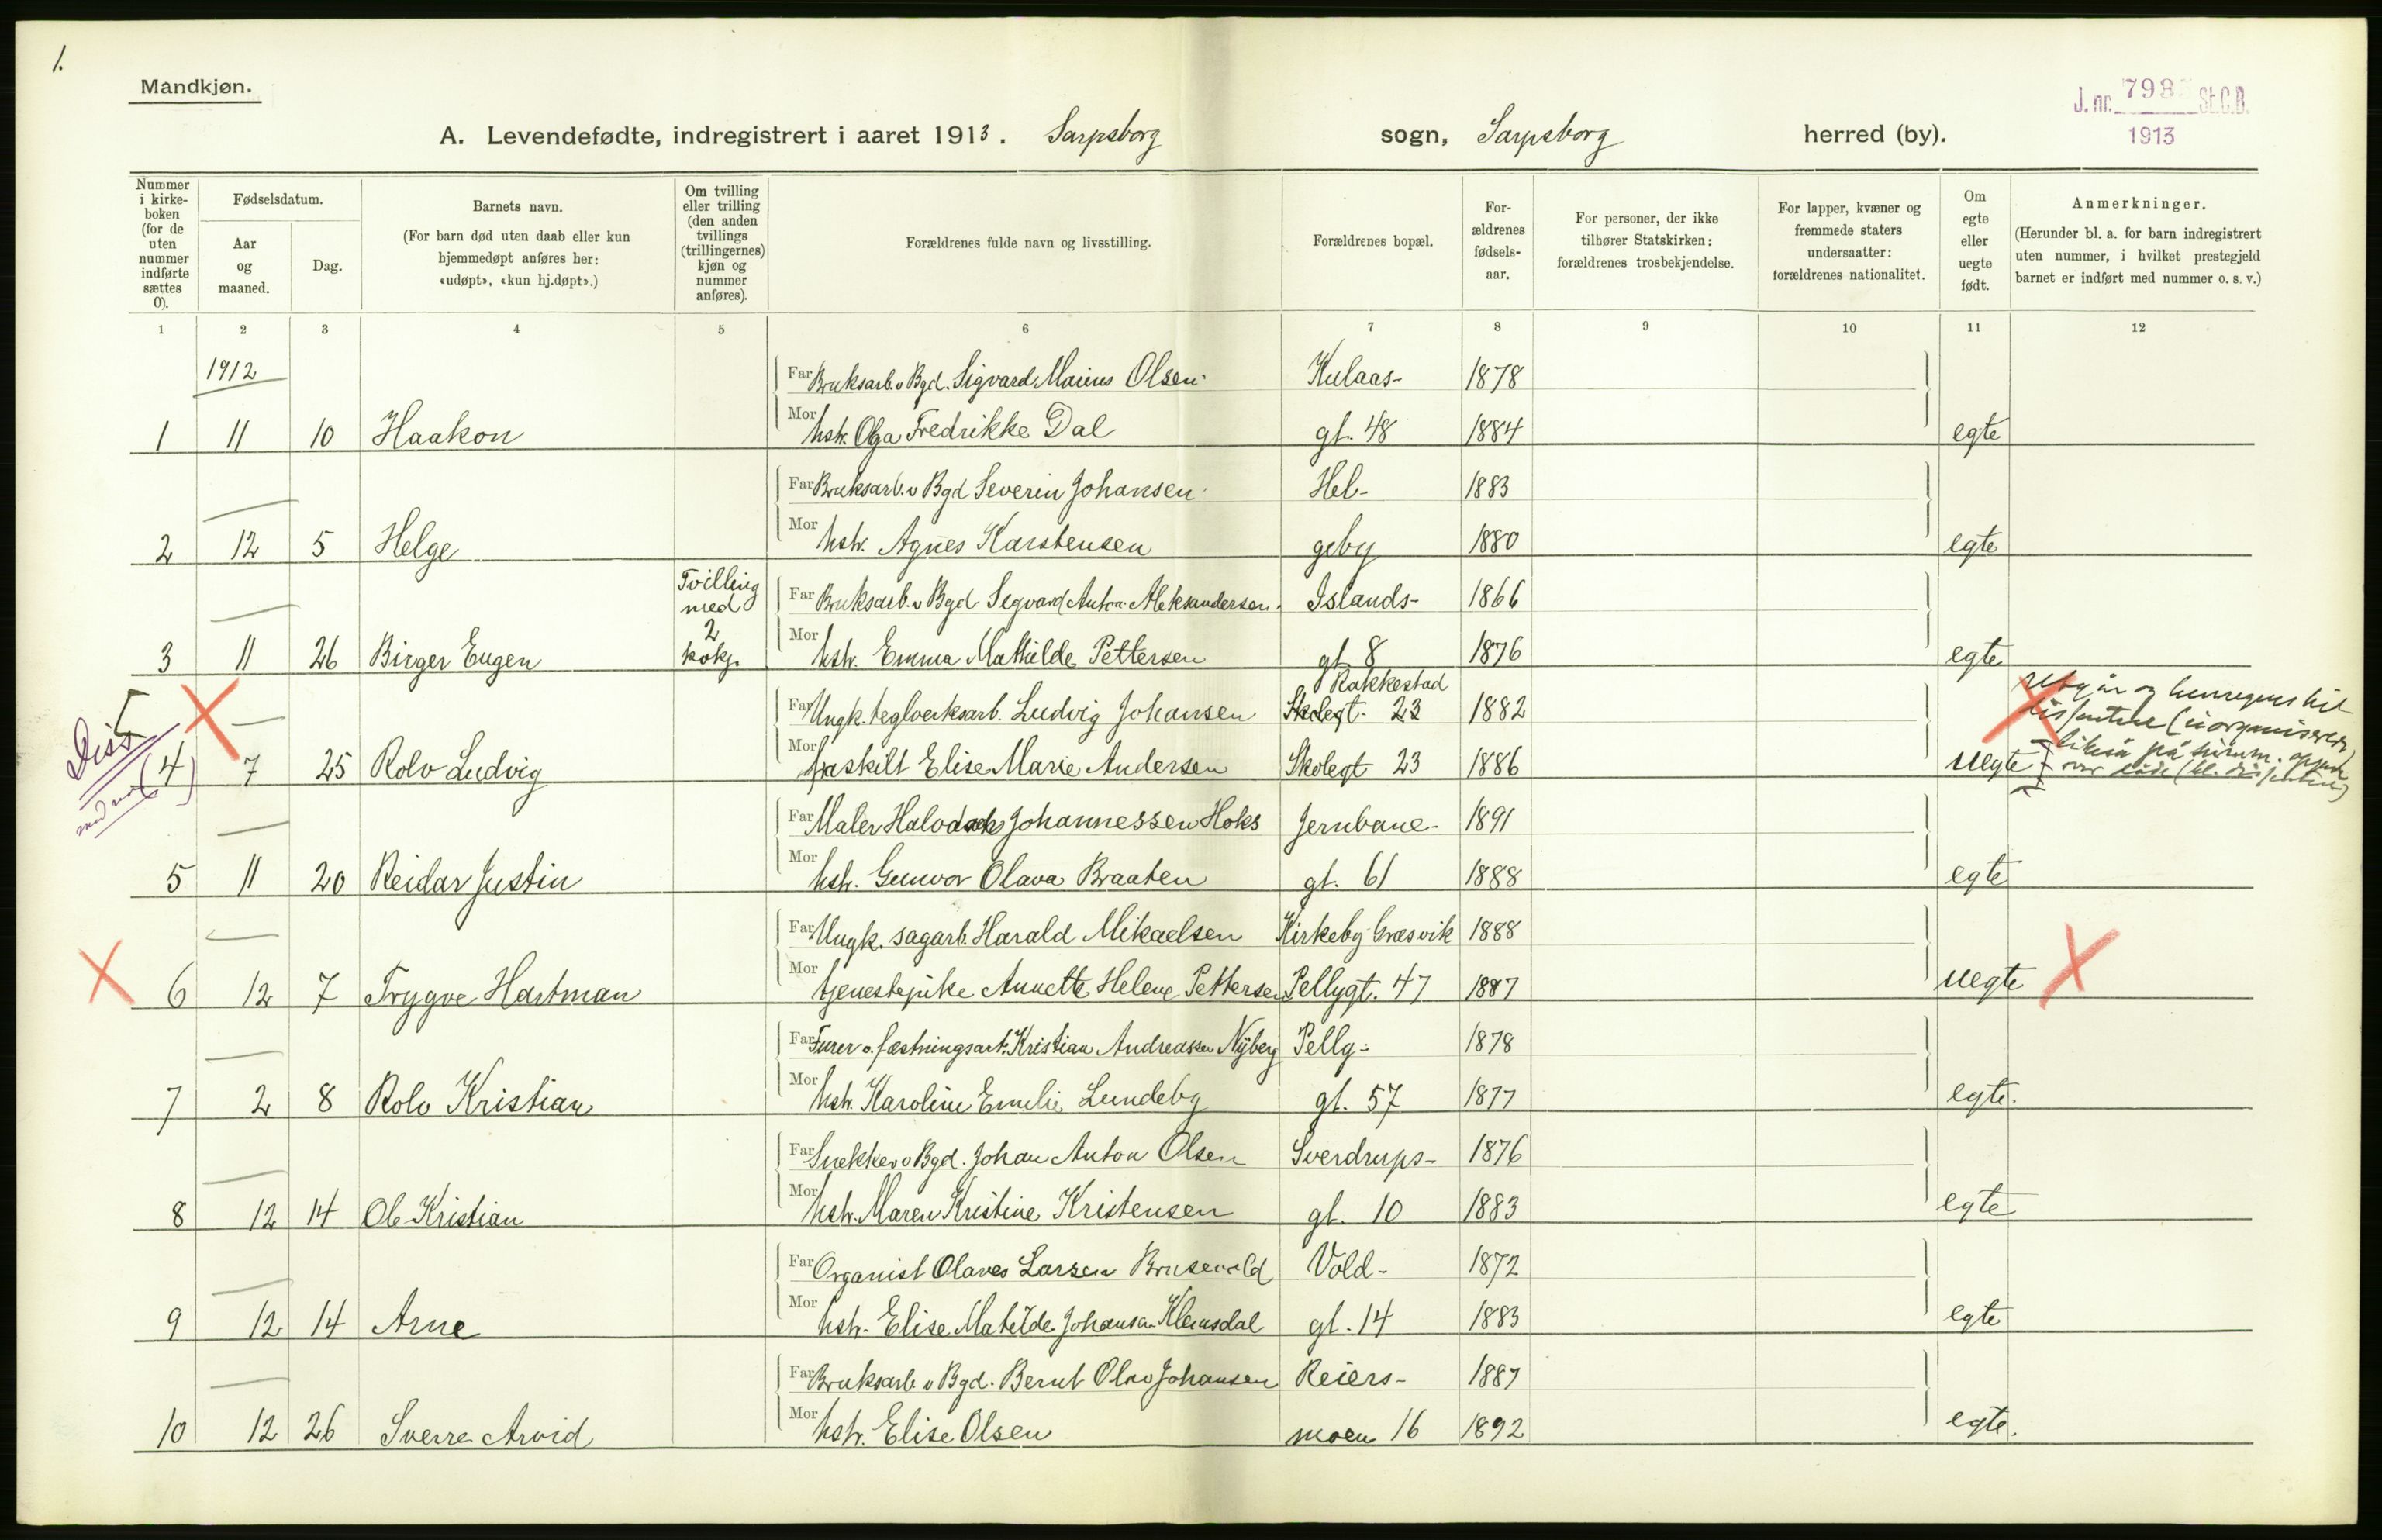 1.
Mandkjøn.
J. nr. 798 St.C.B.
1913
A. Levendefødte, indregistrert i aaret 1913. Sarpsborg sogn, Sarpsborg herred (by).
Nummer i kirkeboken (for de uten nummer indførte sættes 0).
Fødselsdatum.
Aar og maaned.
Dag.
Barnets navn.
(For barn død uten daab eller kun hjemmedøpt anføres her: «udøpt», «kun hj.døpt».)
Om tvilling eller trilling (den anden tvillings (trillingernes) kjøn og nummer anføres).
Forældrenes fulde navn og livsstilling.
Forældrenes bopæl.
For- ældrenes fødsels- aar.
For personer, der ikke tilhører Statskirken: forældrenes trosbekjendelse.
For lapper, kvæner og fremmede staters undersaatter: forældrenes nationalitet.
Om egte eller uegte født.
Anmerkninger.
(Herunder bl. a. for barn indregistrert uten nummer, i hvilket prestegjeld barnet er indført med nummer o. s. v.)
1 2 3 4 5 6 7 8 9 10 11 12
1912
Far Bruksarb. v Bgd. Sigvard Marius Olsen Kulaas- 1878
1 11 10 Haakon Mor hstr. Olga Fredrikke Dal gt. 48 1884 egte
Far Bruksarb. v Bgd Severin Johansen Hel- 1883
2 12 5 Helge Mor hstr. Agnes Karstensen geby 1880 egte
Tvilling med 2 kvkj.
Far Bruksarb. v Bgd Segvard Anton Aleksandersen Islands- 1866
3 11 26 Birger Eugen Mor hstr. Emma Mathilde Pettersen gt 8 1876 egte
Rakkestad
Far Ungk. teglverksarb. Ludvig Johansen Skolegt. 23 1882
Diss 5
(4) 7 25 Rolv Ludvig Mor fraskilt Elise Marie Andersen Skolegt 23 1886 uegte
Far Maler Johannessen Hoks Jernbane- 1891
5 11 20 Reidar Justin Mor hstr. Gunvor Olava Braaten gt. 61 1888 egte
Far Ungk. sagarb. Harald Mikaelsen Kirkeby Græsvik 1888
6 12 7 Trygve Hartman Mor tjenestepike Annette Helene Pettersen Pellygt. 47 1887 uegte
Far Furer o. fæstningsarb. Kristian Andreassen Nyberg Pelly- 1878
7 2 8 Rolv Kristian Mor hstr. Karoline Emelie Lundeby gt. 57 1877 egte.
Far Snekker v Bgd. Johan Anton Olsen Sverdrups- 1876
8 12 14 Ole Kristian Mor hstr. Maren Kristine Kristensen gt. 10 1883 egte
Far Organist Olaves Larsen Brusevold Vold- 1872
9 12 14 Arne Mor hstr. Elise Matilde Johansen Klemsdal gt. 14 1883 egte
Far Bruksarb v Bgd. Bernt Olav Johansen Reiers- 1887
10 12 26 Sverre Arvid Mor hstr. Elise Olsen moen 16 1892 egte.